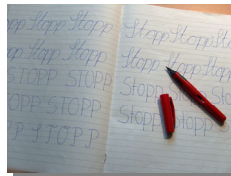 Stopp Stopp Stopp
Stopp Stopp Stopp
STOPP STOPP
STOPP STOPP
STOPP
Stopp Stopp Stopp
Stopp Stopp Stopp
Stopp Stopp
Stopp Stopp